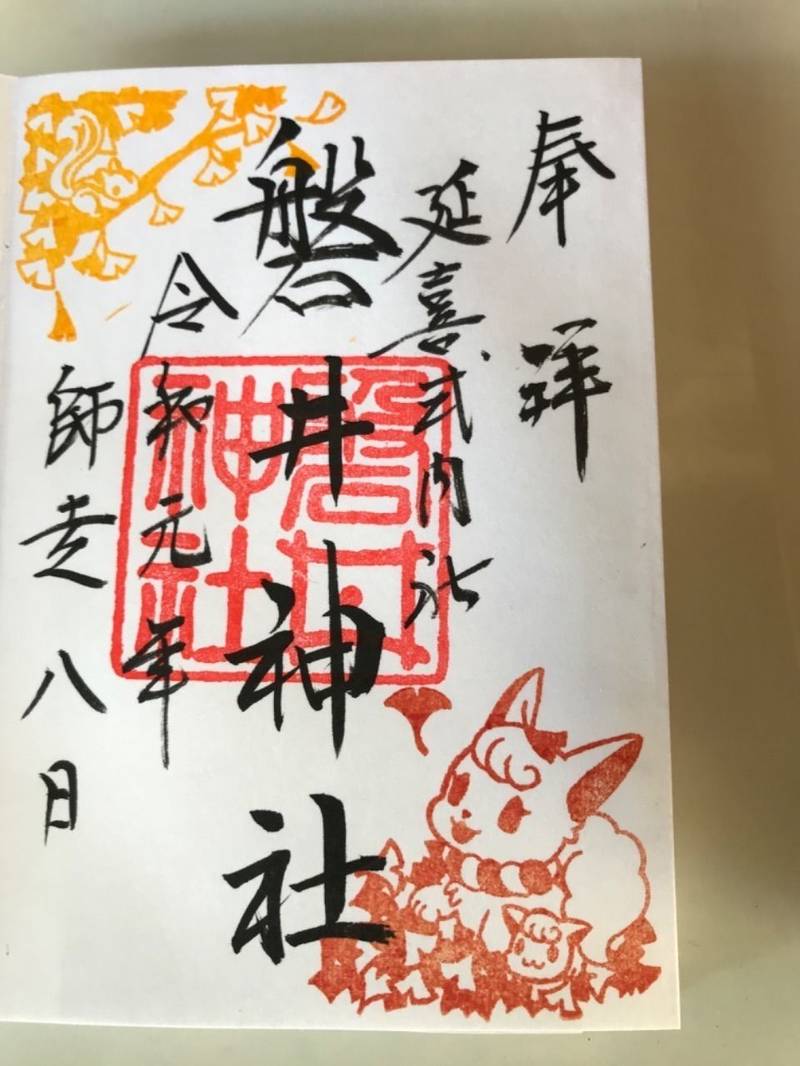 奉拝
延喜式内社
磐井神社
磐井神社
令和元年
師走八日